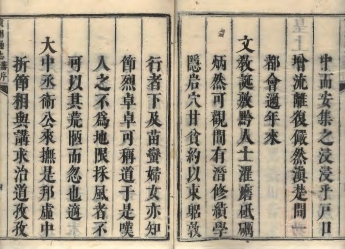 中而安集之浸浸乎戸口
增流離復儼然滇楚間
都會過年來
文敎誕敷黔人士濯磨砥礪
炳然可觀間有潛修績學
隱岩穴甘貧約以東躬敦
行者下及苗蠻婦女亦知
節烈卓卓可稱道于是嘆
人之不爲地限採風者不
可以其荒陋而忽也適
大中丞術公來撫是邦虛中
折節相與講求治道孜孜